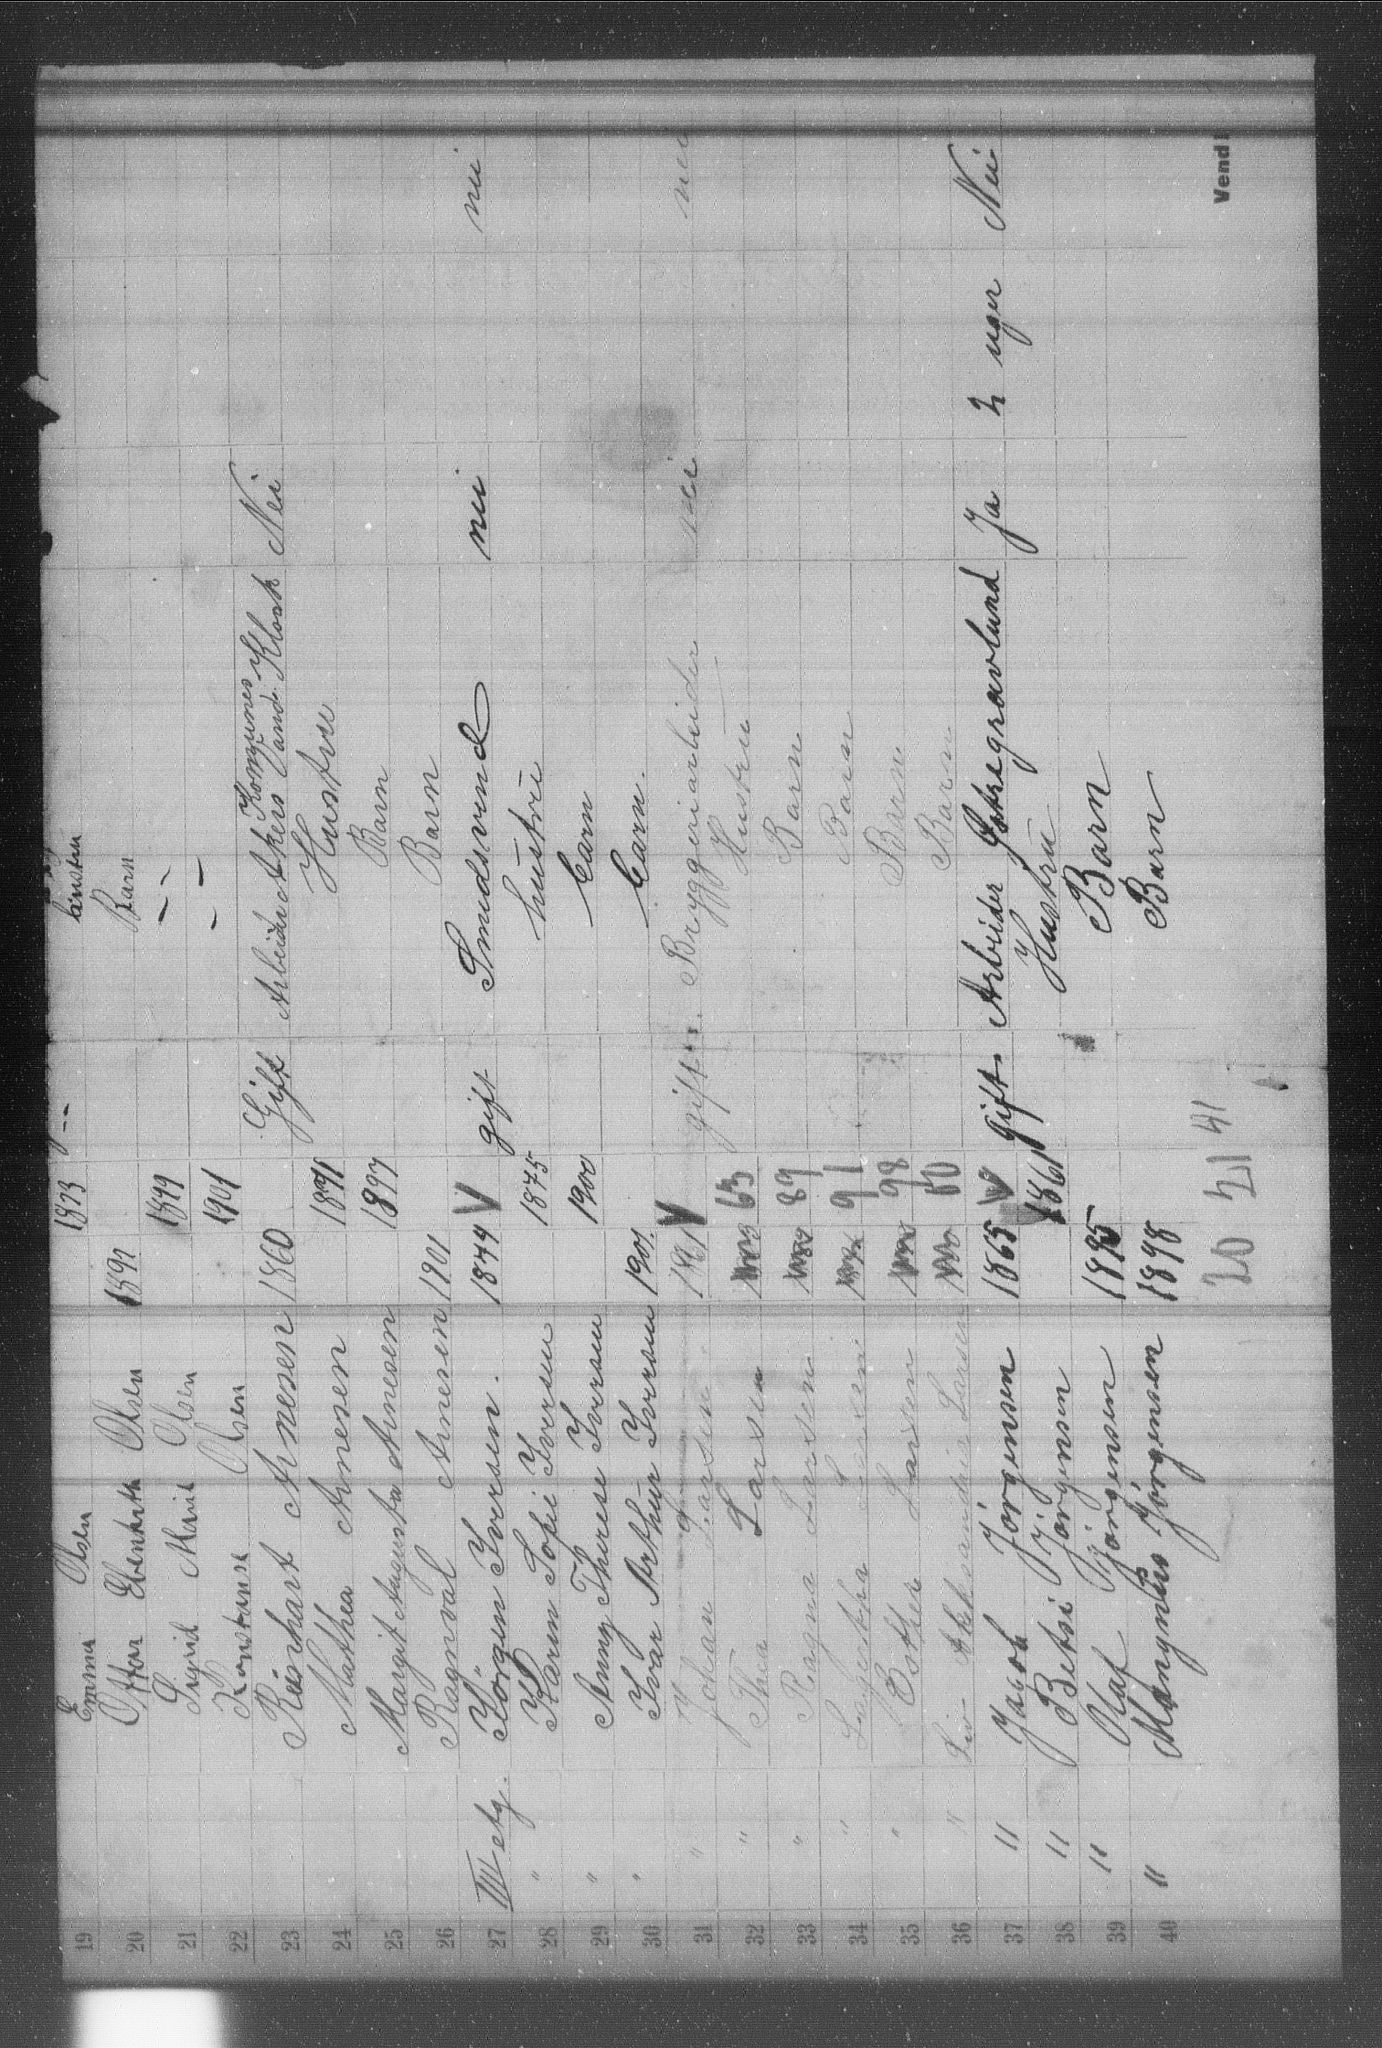 19 Emma Olsen 1873 " - - hustru
20 Ottar Olsen 1897 Barn
21 Sigrid Marie Olsen 1899 - -
22 Konstanse Olsen 1901 - -
23 Reinhart Arnesen 1860 Gift Arbeider Akers Komunes Vand Kloak Nei
24 Mathea Arnesen 1871 Hustru
25 Margit Augusta Arnesen 1897 Barn
26 Ragnval Arnesen 1901 Barn
III etg. 27 Jörgen Iversen. 1874 V gift Smedsvend nei nei
" 28 Karen Sofie Iversen 1875 hustru
" 29 Anny Therese Iversen 1900 barn
" 30 Ivar Arthur Iversen 1901. barn.
" 31 Johan Larsen. 1861 V gift. Bryggeriarbeider nei nei
" 32 Thea Larsen 63 Hustru
" 33 Ragna Larsen 89 Barn
" 34 Larsen 91 Barn
" 35 Esther Larsen 98 Barn
" 36 Larsen 00 Barn
" 37 Jacob Jörgensen 1865 V gift. Arbeider Ja 2 uger Nei
" 38 Betsi Jörgensen 1861 Hustru
" 39 Olaf Jörgensen 1895 Barn
" 40 Mangnus Jörgensen 1898 Barn
20 21 41
Vend!